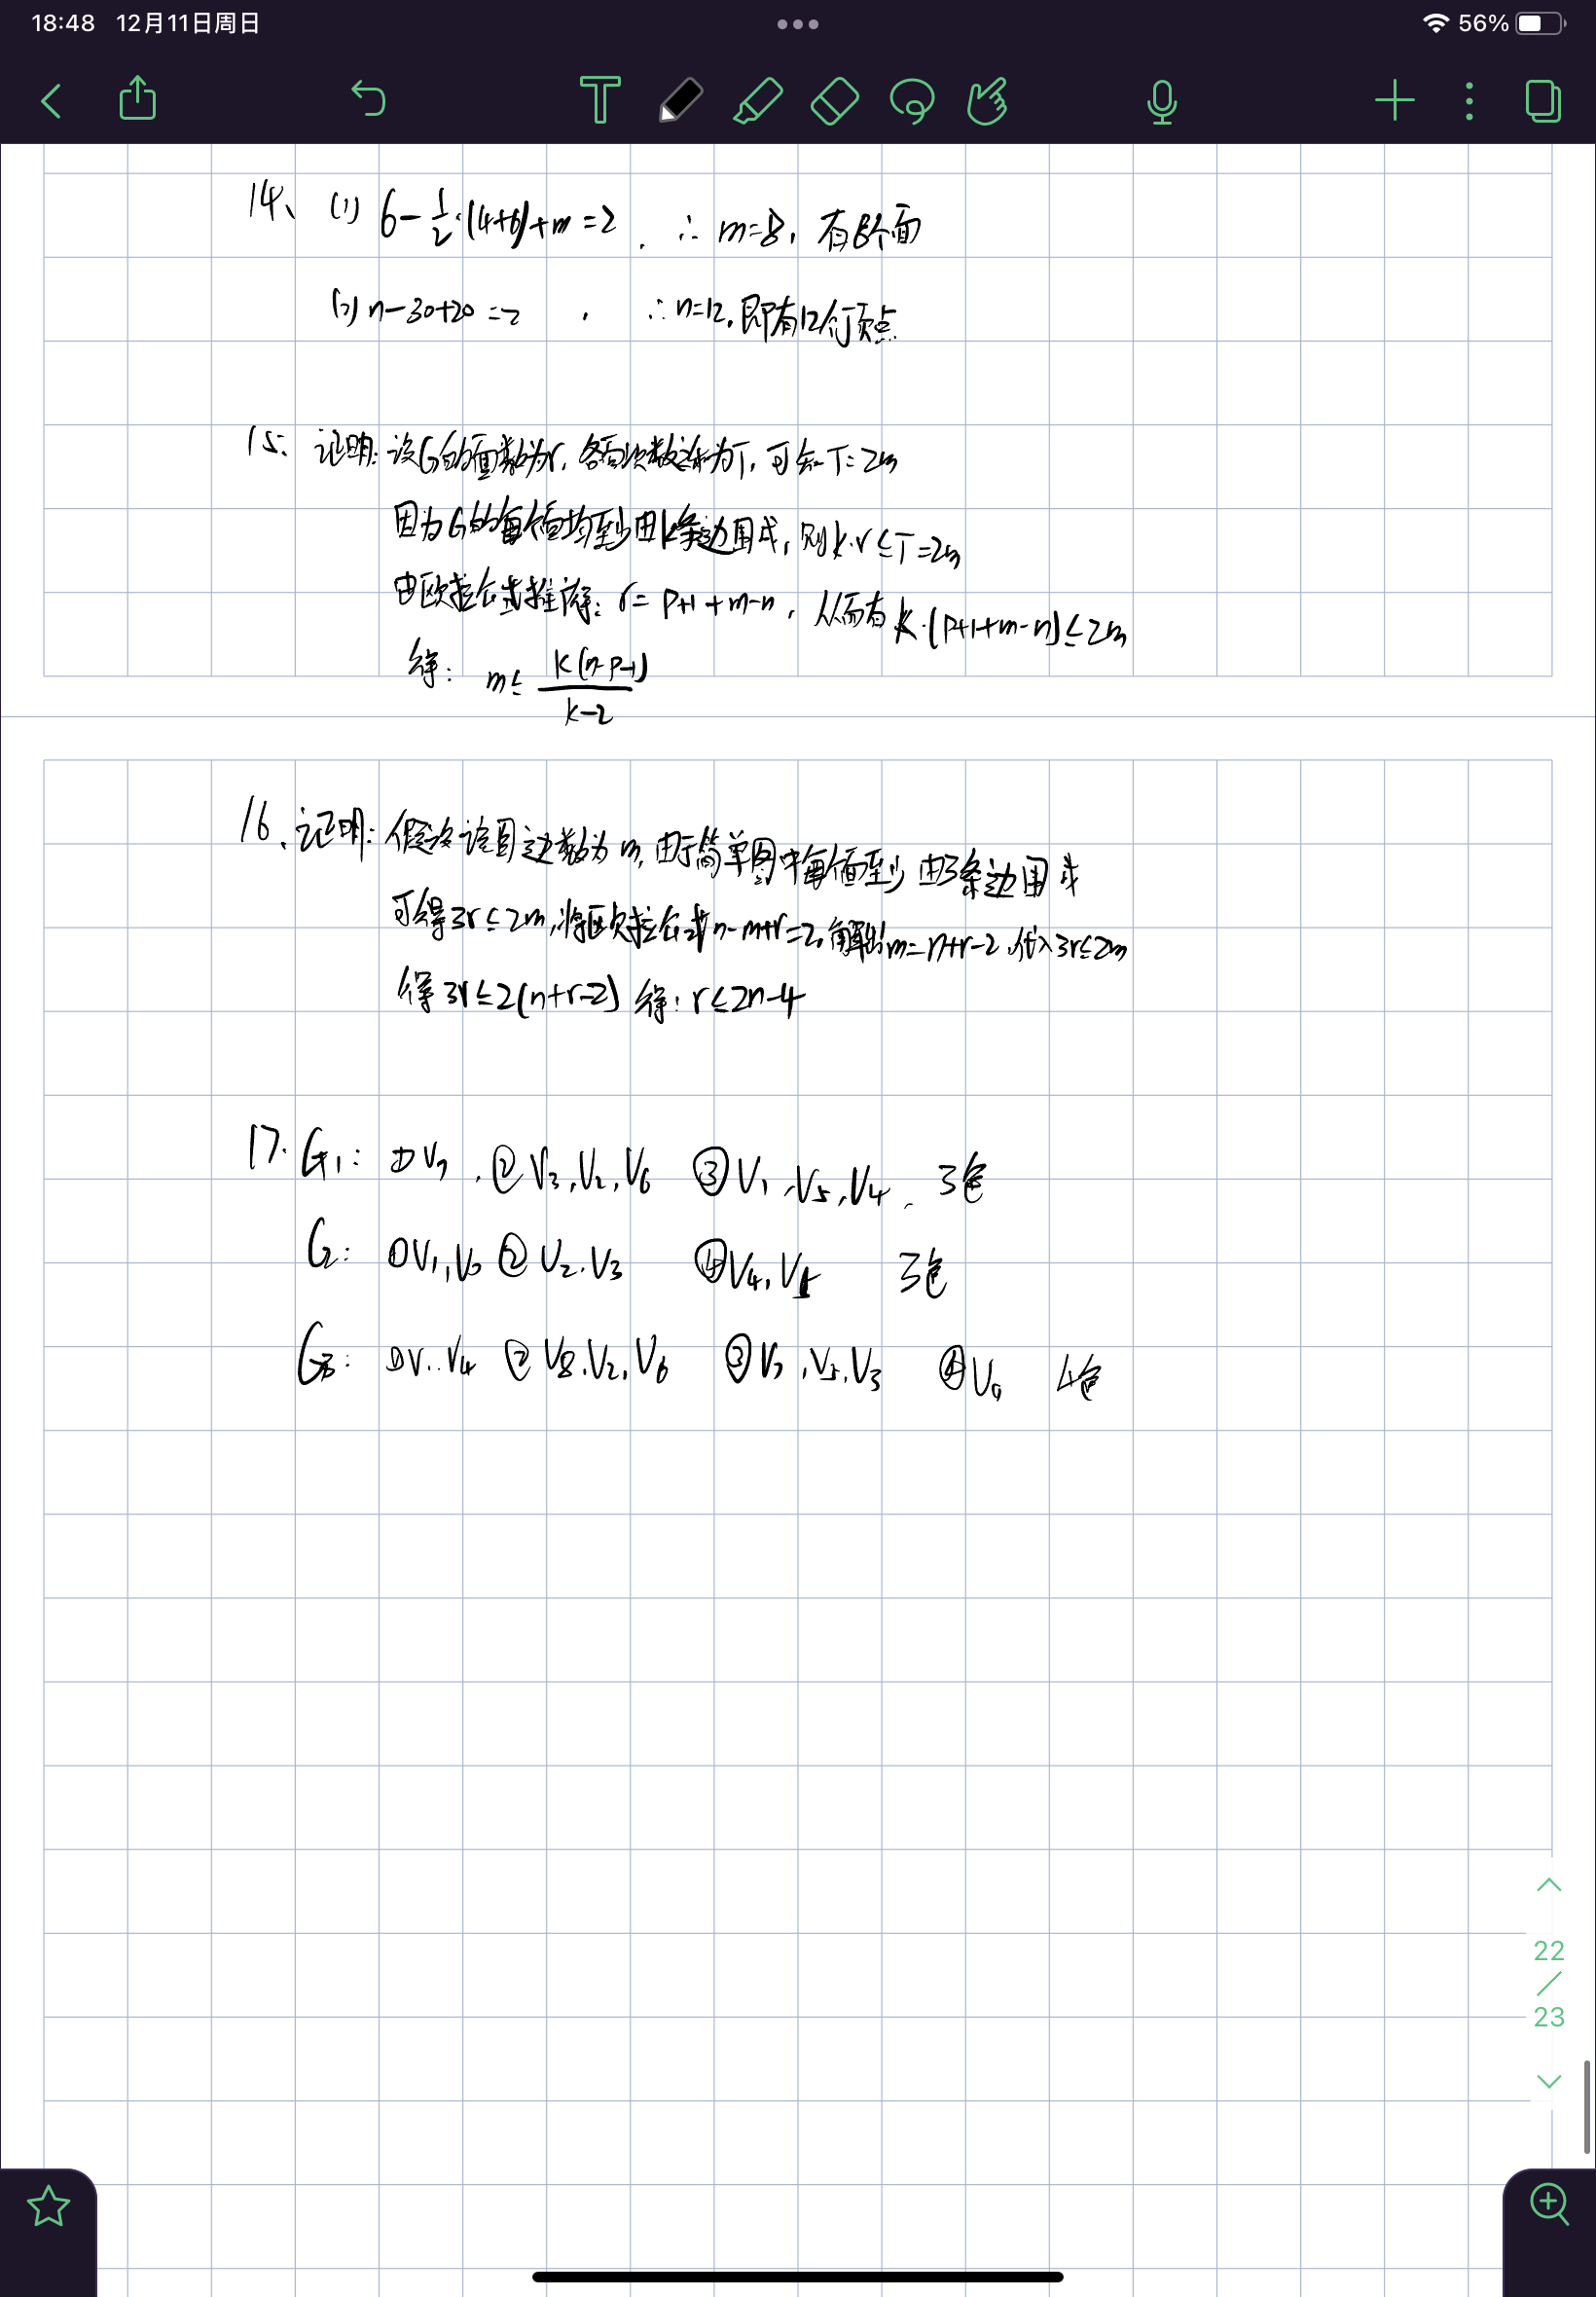 18:48 12月11日周日
56%
14、 (1) 6-½·(4+6)+m=2. ∴ m=8, 有8个面
(2) n-30+20=2 , ∴n=12, 即有12个顶点
15、 证明: 设G的面数为r, 各面次数之和为T, 可知T=2m
因为G的每个面均至少由k条边围成, 则k·r≤T=2m
由欧拉公式推广得: r=p+1+m-n, 从而有k·(p+1+m-n)≤2m
得: m≤ k(n-p-1)/k-2
16、证明: 假设该图边数为m, 由于简单图中每个面至少由3条边围成
可得3r≤2m, 将欧拉公式n-m+r=2, 解出m=n+r-2, 代入3r≤2m
得3r≤2(n+r-2) 得: r≤2n-4
17. G1: ①V7, ②V3,V2,V6 ③V1,V5,V4. 3色
G2: ①V1, ②V2.V3 ④V4, 3色
G3: ①V1.V4 ②V8.V2,V6 ③V7,V5.V3 ④V9 4色
22
/
23